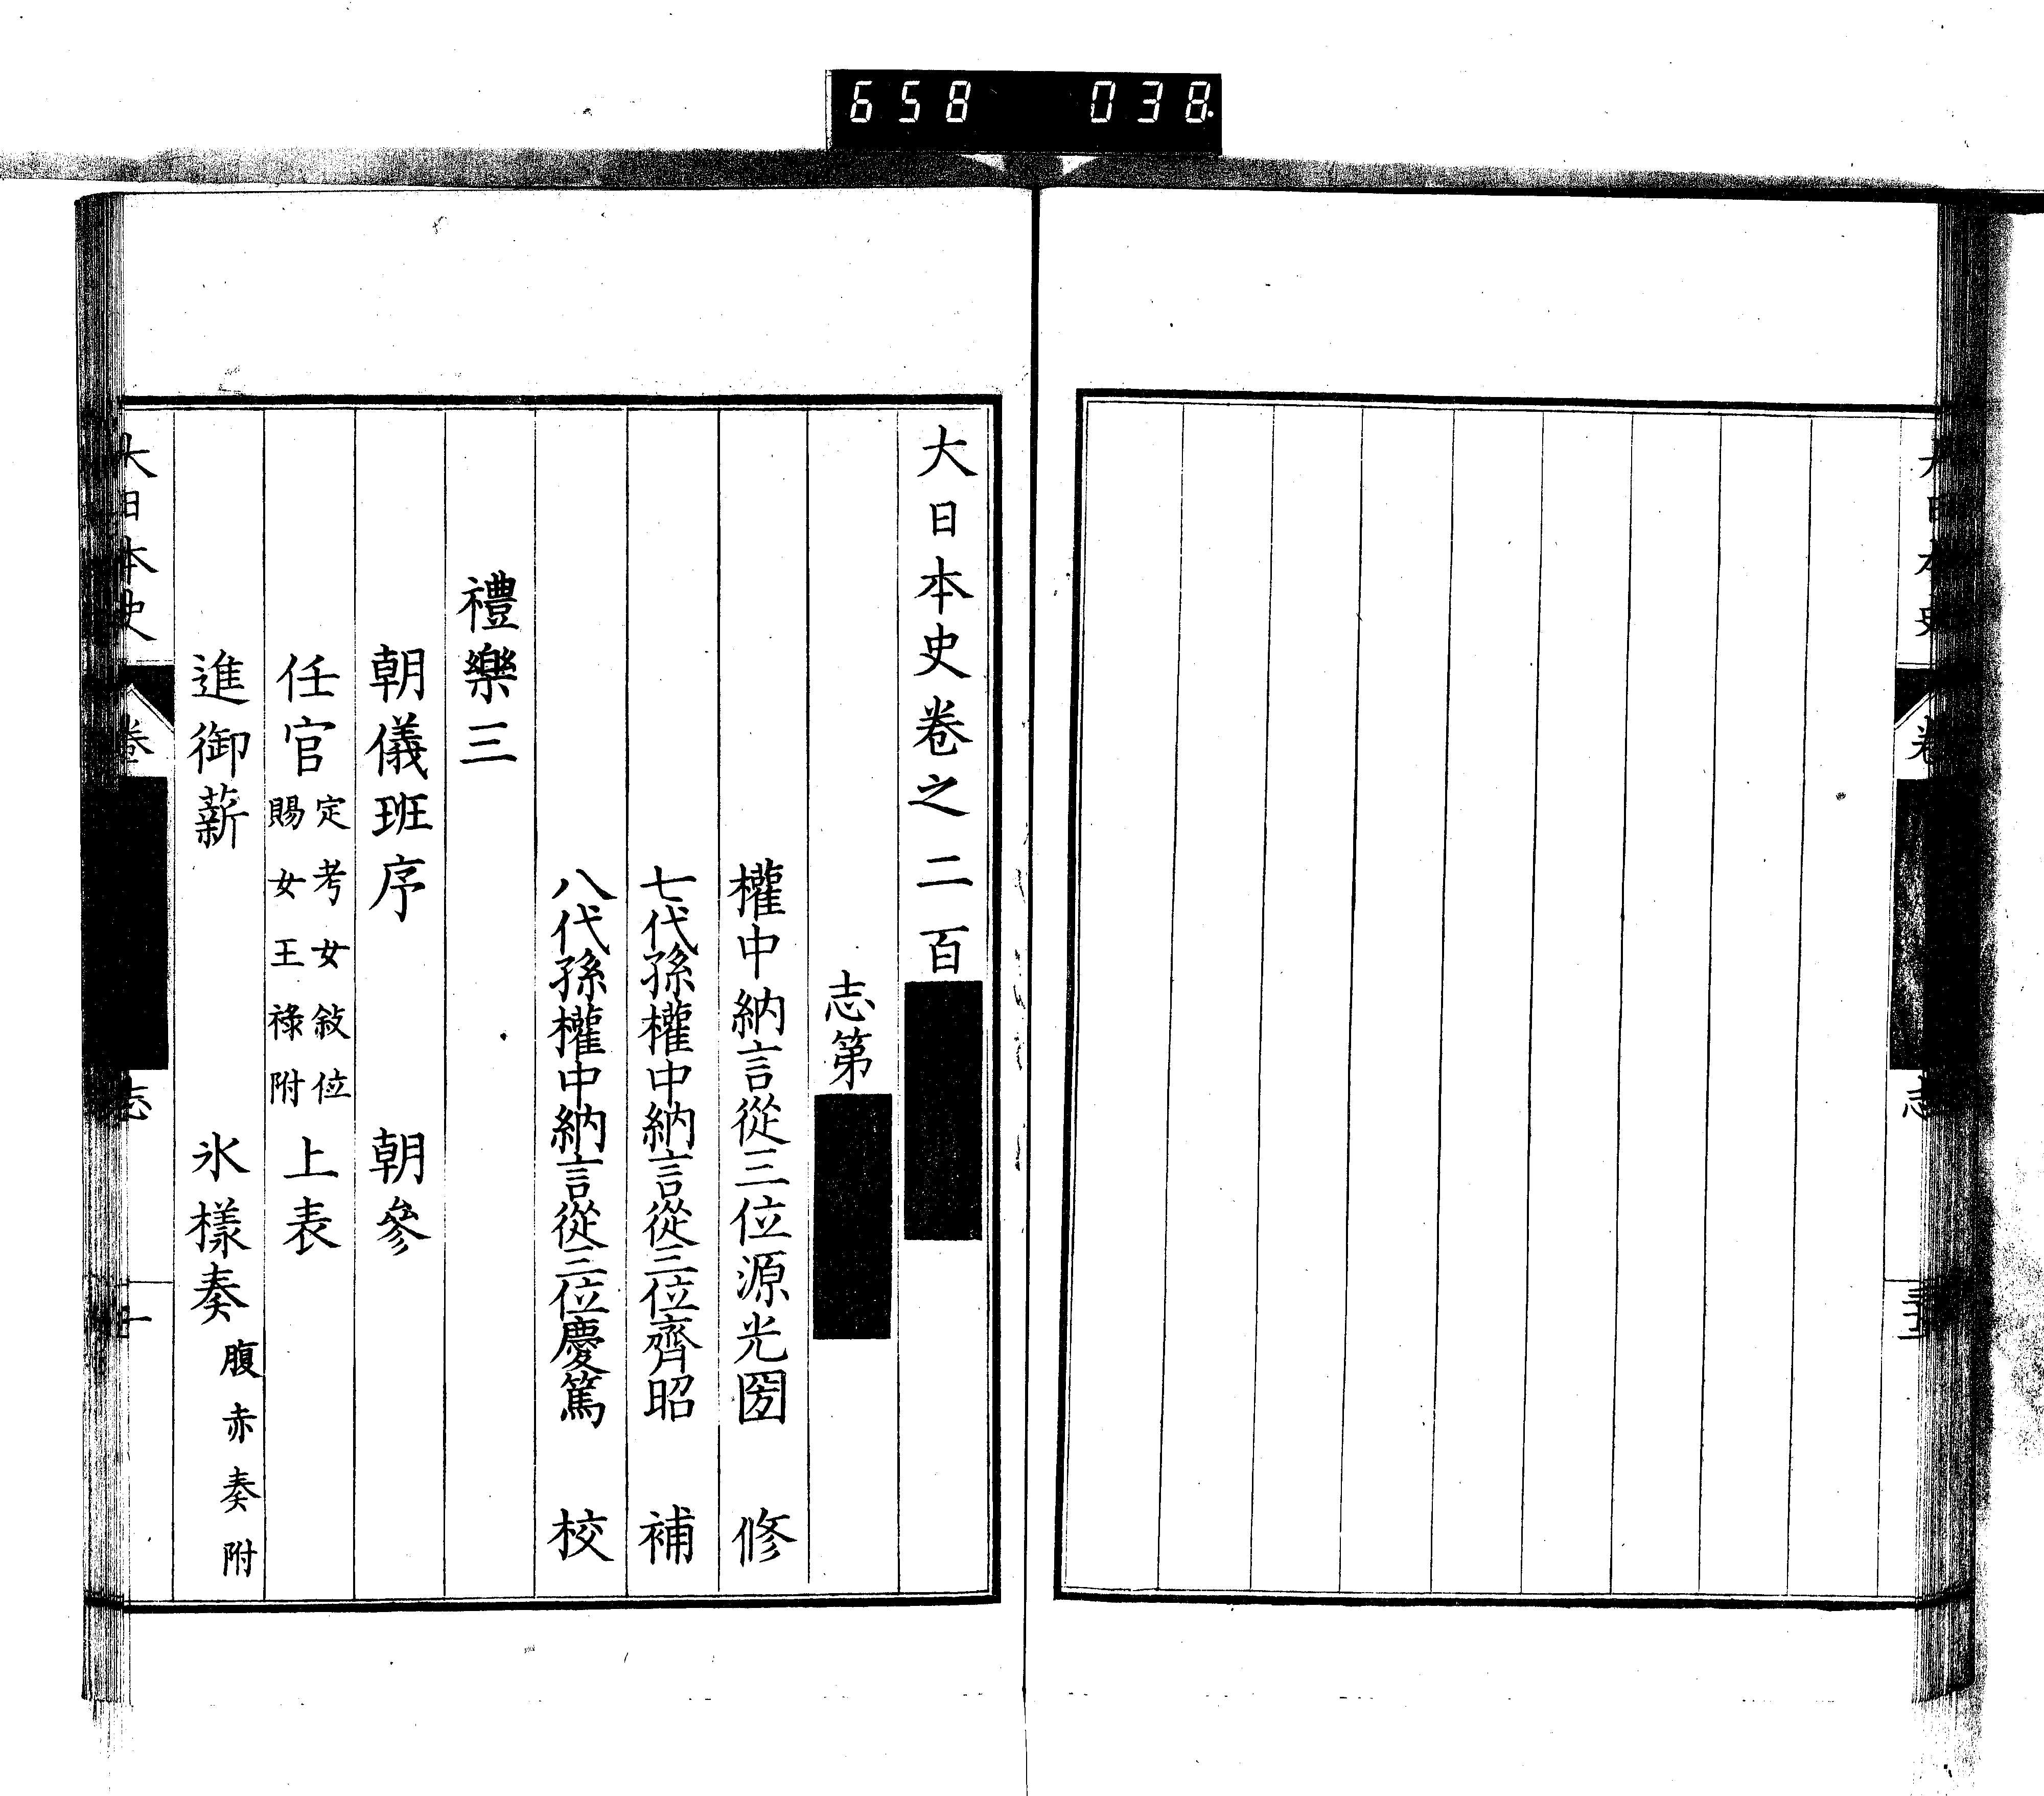 658 038
大日本史卷之二百
志第
權中納言從三位源光圀 修
七代孫權中納言從三位齊昭 補
八代孫權中納言從三位慶篤 校
禮樂三
朝儀班序 朝參
任官 定考女敍位 賜女王祿附 上表
進御薪 氷樣奏 腹赤奏附
大日本史 卷 志 一